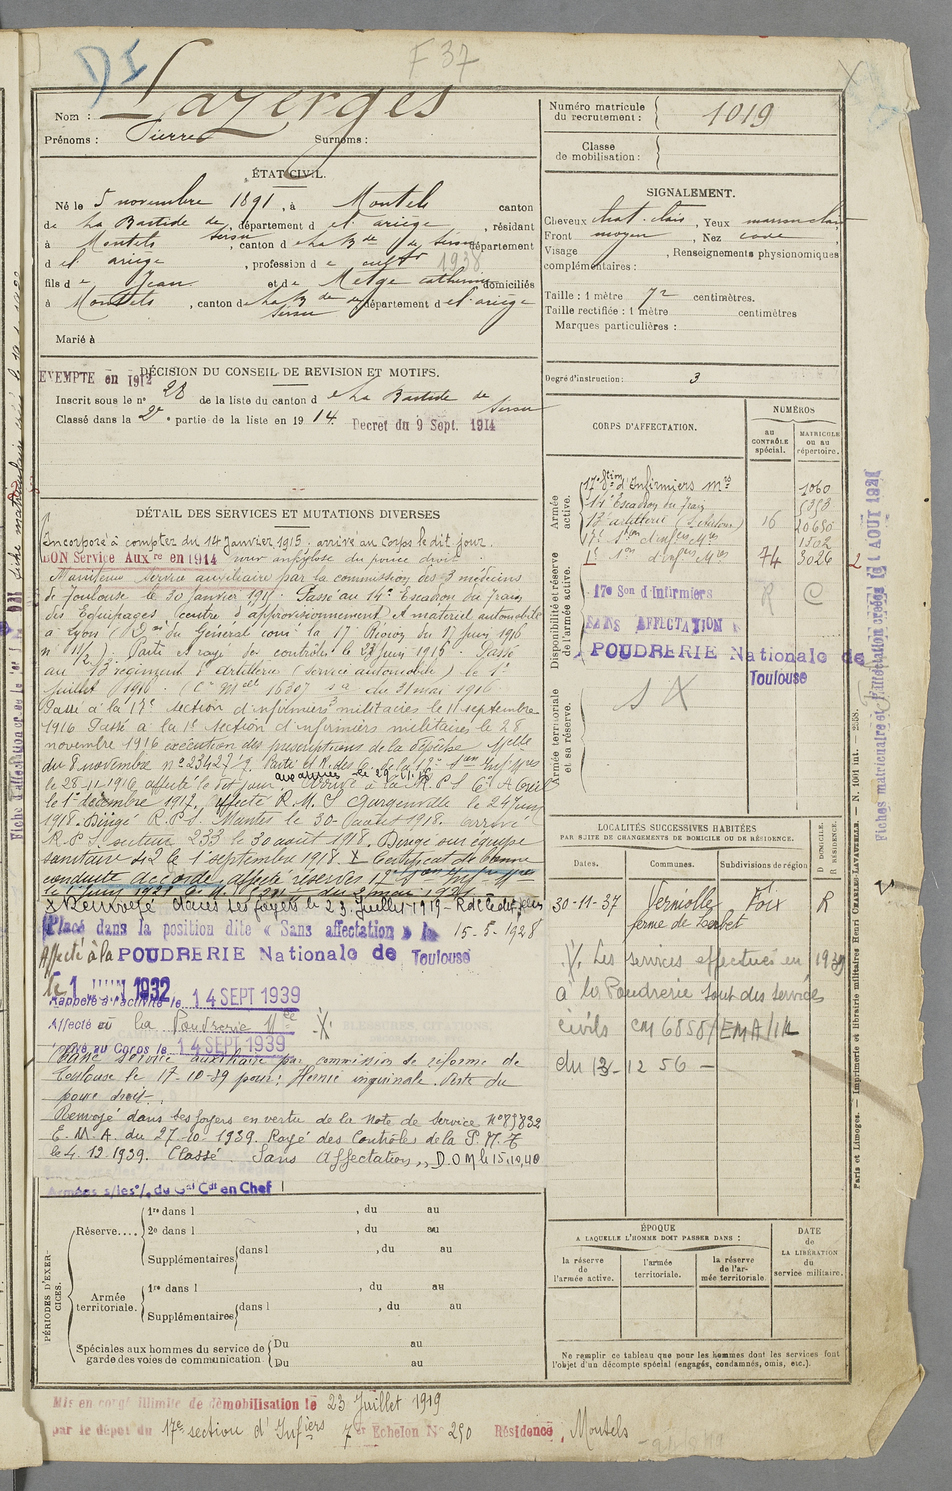 DI
F 37
Nom : Lazerges
Prénoms : Pierre Surnoms :
Numéro matricule du recrutement : 1019
Classe de mobilisation :
ÉTAT CIVIL.
Né le 5 novembre 1891, à Montels canton
de La Bastide de Serou, département d el ariège, résidant
à Montels, canton d e La Bde de Serou département
d el ariège, profession d e cultr 1938
fils d e Jean et de Metge Catherine domiciliés
à Montels, canton d e La Bde de Serou département d el ariège
Marié à
SIGNALEMENT.
Cheveux chat. clair, Yeux marron clair
Front moyen, Nez cave,
Visage , Renseignements physionomiques
complémentaires :
Taille : 1 mètre 72 centimètres.
Taille rectifiée : 1 mètre centimètres
Marques particulières :
Degré d'instruction : 3
DÉCISION DU CONSEIL DE REVISION ET MOTIFS.
EXEMPTE en 1912
Inscrit sous le n° 28 de la liste du canton d e La Bastide de Serou
Classé dans la 2e partie de la liste en 1914. Decret du 9 Sept. 1914
CORPS D'AFFECTATION.
NUMÉROS
AU CONTRÔLE spécial.
MATRICULE OU AU répertoire.
Armée active.
17e Son d'Infirmiers Mres 1060
14e Escadron du Train 5393
13e artillerie 16 20650
1502
74 3026
Disponibilité et réserve de l'armée active.
17e Son d'Infirmiers R C
SANS AFFECTATION
POUDRERIE Nationale de Toulouse
Armée territoriale et sa réserve.
S X
DÉTAIL DES SERVICES ET MUTATIONS DIVERSES
Incorporé à compter du 14 janvier 1915. arrivé au Corps le dit jour.
BON Service Auxre en 1914 pour ankylose du pouce droit
Maintenu service auxiliaire par la commission des 3 médecins
de Toulouse le 30 janvier 1915. Passé au 14e Escadron du Train
des Equipages (centre d'approvisionnement et matériel automobile
à Lyon du Général comt la 17e Région du 17 juin 1916
Parti et rayé des contrôles le 23 juin 1916. Passé
au 13e régiment d'artillerie (service automobile) le 1er
juillet 1916. du 31 mai 1916
Passé à la 17e section d'infirmiers militaires le 11 septembre
1916 Passé à la 1e section d'infirmiers militaires le 28
novembre 1916 exécution des prescriptions de la dépêche Melle
du 8 novembre n° 23427/7. Parti et R. des C. de la 17e
le 28-11-1916 affecté le dit jour.
le 1er décembre 1917. affecté R.M.S Gargenville le 24 juin
1918. Dirigé R.P.S. Mantes le 30 août 1918. arrivé
R.P.S. secteur 233 le 30 août 1918. Dirigé sur équipe
sanitaire le 1er septembre 1918. X Certificat de bonne
conduite accordé, affecté réserves 17e
le 1er juin 1921 du 2 mai 1921
X Renvoyé dans ses foyers le 23 Juillet 1919
Placé dans la position dite « Sans affectation » le 15-5-1928
Affecté à la POUDRERIE Nationale de Toulouse
le 1 JUIN 1932
Rappelé à l'activité le 14 SEPT 1939
Affecté à la Poudrerie Nle X
Arrivé au Corps le 14 SEPT 1939
Classé service auxiliaire par commission de réforme de
Toulouse le 17-10-39 pour : Hernie inguinale. Perte du
pouce droit.
Renvoyé dans ses foyers en vertu de la Note de Service N° 89832
E.M.A. du 27-10-1939. Rayé des Contrôles de la P.N.T
le 4.12.1939. Classé "Sans Affectation" D.O.M le 15.10.40
Armées s/les % du Gal Cdt en Chef
LOCALITÉS SUCCESSIVES HABITÉES
PAR SUITE DE CHANGEMENTS DE DOMICILE OU DE RÉSIDENCE.
Dates. Communes. Subdivisions de région D. DOMICILE. R. RÉSIDENCE.
30-11-37 Verniolle Foix R
ferme de
X. Les services effectués en 1939
à la Poudrerie sont des services
civils CM 6858/EMA/1R
du 13-12 56 -
PÉRIODES D'EXERCICES.
Réserve....
1re dans l , du au
2e dans l , du au
Supplémentaires dans l , du au
Armée territoriale.
1re dans l , du au
Supplémentaires dans l , du au
Spéciales aux hommes du service de garde des voies de communication
Du au
Du au
ÉPOQUE
A LAQUELLE L'HOMME DOIT PASSER DANS :
la réserve de l'armée active.
l'armée territoriale.
la réserve de l'armée territoriale.
DATE de LA LIBÉRATION du service militaire.
Ne remplir ce tableau que pour les hommes dont les services font
l'objet d'un décompte spécial (engagés, condamnés, omis, etc.).
Mis en congé illimité de démobilisation le 23 Juillet 1919
par le dépôt du 17e section d'Infiers 7e Echelon N° 250 Résidence, Montels
Paris et Limoges. — Imprimerie et librairie militaires Henri CHARLES-LAVAUZELLE.